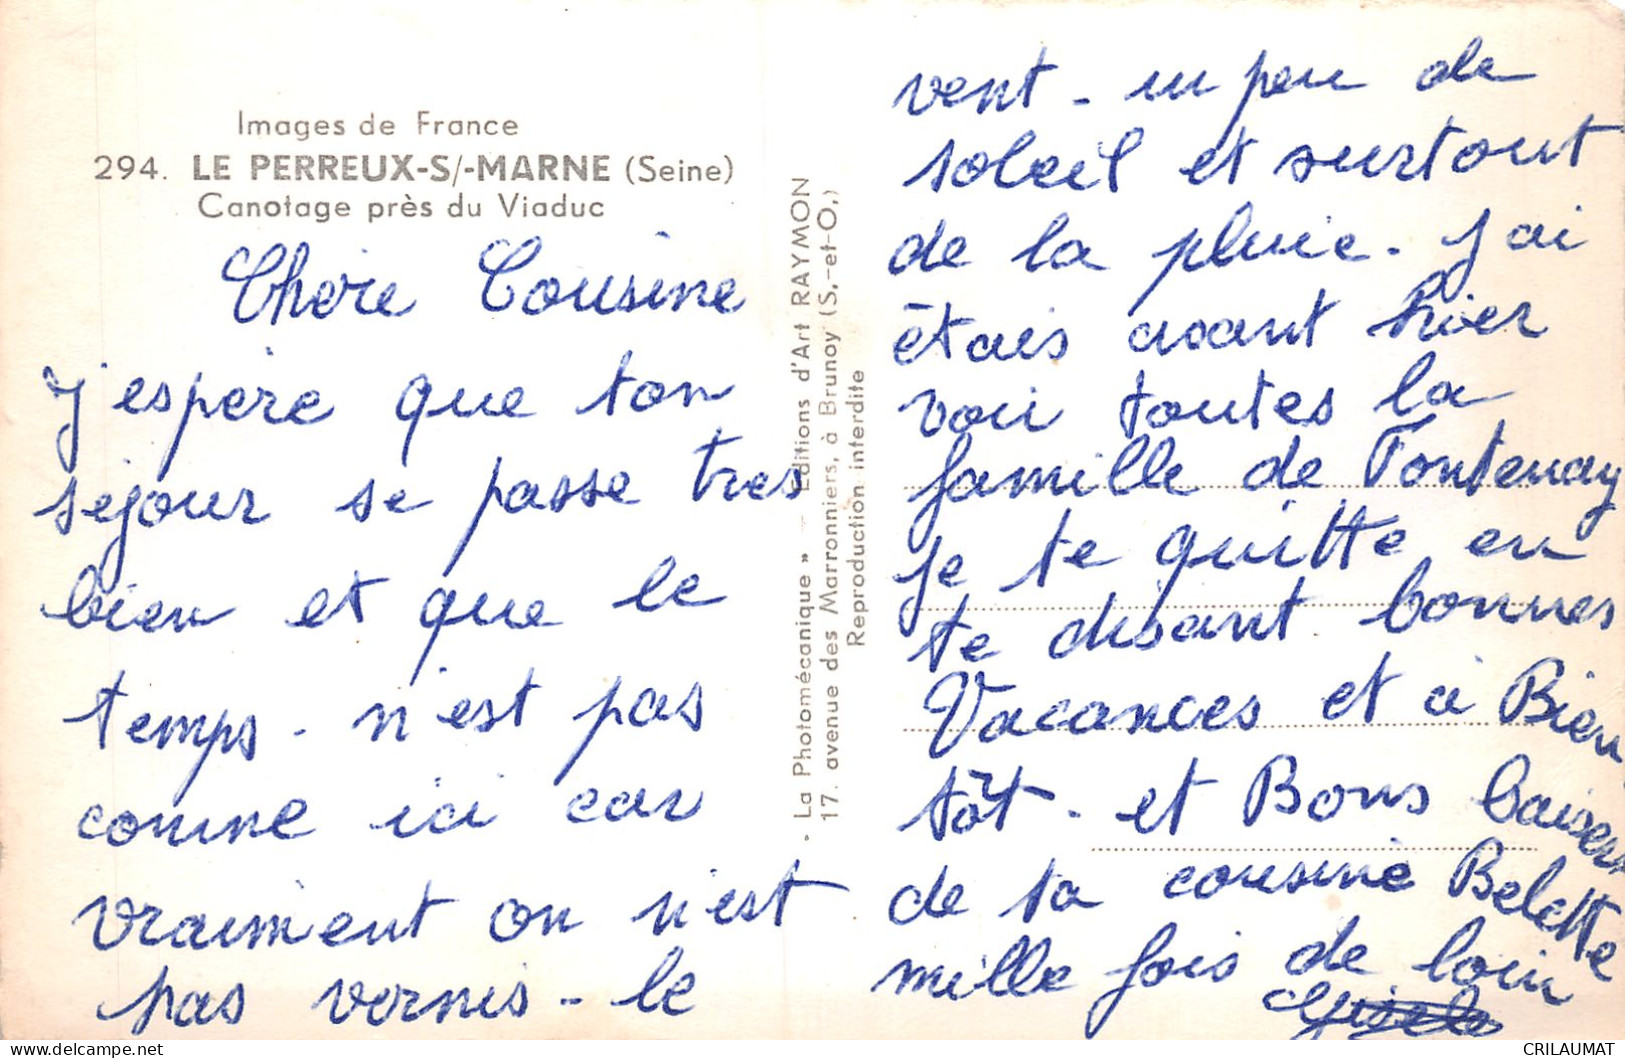 Images de France
294. LE PERREUX-S/-MARNE (Seine)
Canotage près du Viaduc
Chère Cousine
j'espère que ton
séjour se passe tres
bien et que le
temps - n'est pas
comme ici car
vraiment on n'est
pas vernis - le
« La Photomécanique » - Editions d'Art RAYMON
17. avenue des Marronniers, à Brunoy (S.-et-O.)
Reproduction interdite
vent - un peu de
soleil et surtout
de la pluie. j'ai
étais avant hier
voir toutes la
famille de Fontenay
je te quitte en
te disant bonnes
Vacances et à Bien
tôt - et Bons baisers
de ta cousine Belette
mille fois de loin
Gisele
CRILAUMAT